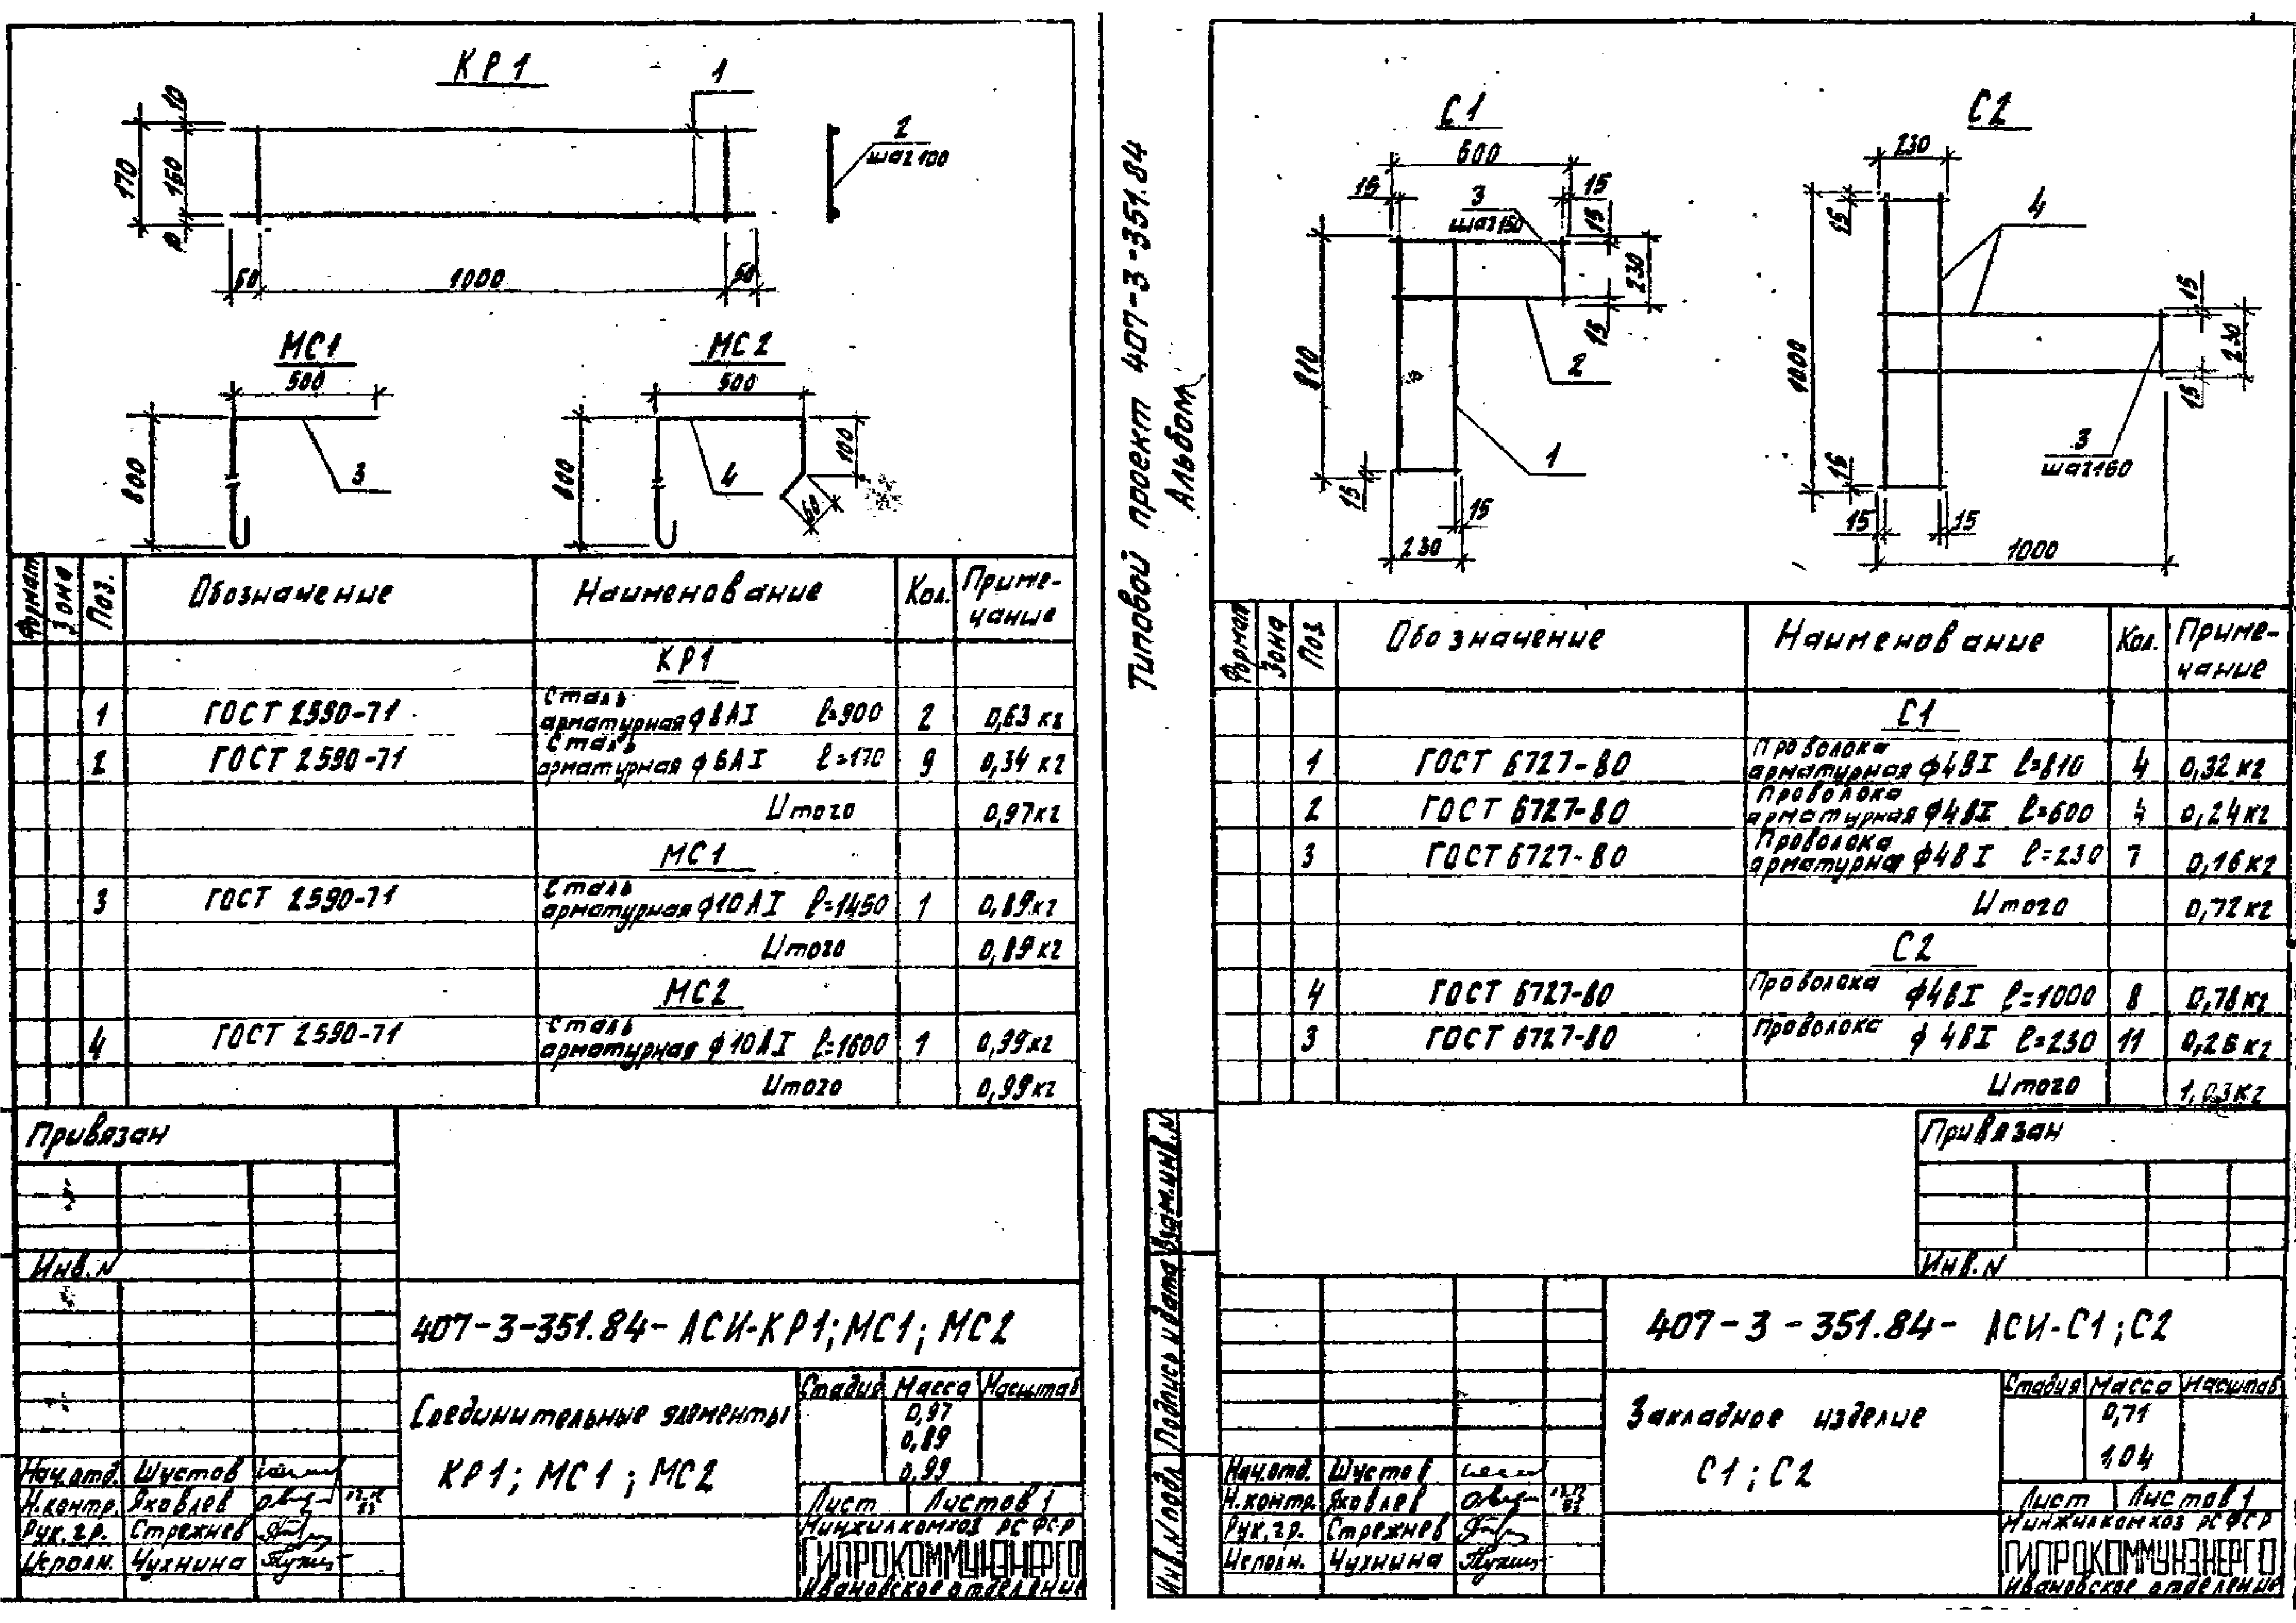 КР1
1
10
150
170
2
шаг 100
50
1000
50
МС1
500
800
3
МС2
500
800
4
100
60
Формат
Зона
Поз.
Обозначение
Наименование
Кол.
Приме-
чание
КР1
1 ГОСТ 2590-71 Сталь арматурная ф8АI ℓ=900 2 0,63 кг
2 ГОСТ 2590-71 Сталь арматурная ф6АI ℓ=170 9 0,34 кг
Итого 0,97кг
МС1
3 ГОСТ 2590-71 Сталь арматурная ф10АI ℓ=1450 1 0,89кг
Итого 0,89кг
МС2
4 ГОСТ 2590-71 Сталь арматурная ф10АI ℓ=1600 1 0,99кг
Итого 0,99кг
Привязан
Инв.N
407-3-351.84- АСИ-КР1; МС1; МС2
Соединительные элементы
КР1; МС1; МС2
Стадия Масса Масштаб
0,97
0,89
0,99
Лист Листов 1
Нач.отд. Шустов
Н.контр. Яковлев
Рук.гр. Стрежнев
Исполн. Чухнина
Минжилкомхоз РСФСР
ГИПРОКОММУНЭНЕРГО
Ивановское отделение
Типовой проект 407-3-351.84
Альбом
С1
600
15
3
шаг 150
15
15
230
15
810
2
1
15
15
230
С2
230
15
4
1000
15
230
15
3
шаг 160
15
15
15
1000
Формат
Зона
Поз.
Обозначение
Наименование
Кол.
Приме-
чание
С1
1 ГОСТ 6727-80 Проволока арматурная ф4ВI ℓ=810 4 0,32 кг
2 ГОСТ 6727-80 Проволока арматурная ф4ВI ℓ=600 4 0,24кг
3 ГОСТ 6727-80 Проволока арматурна ф4ВI ℓ=230 7 0,16кг
Итого 0,72кг
С2
4 ГОСТ 6727-80 Проволока ф4ВI ℓ=1000 8 0,78кг
3 ГОСТ 6727-80 Проволока ф4ВI ℓ=230 11 0,25 кг
Итого 1,03кг
Привязан
Инв.N
Взам.инв.N
Подпись и дата
Инв.N подл.
407-3-351.84- АСИ-С1; С2
Закладное изделие
С1; С2
Стадия Масса Масштаб
0,71
1,04
Лист Листов 1
Нач.отд. Шустов
Н.контр. Яковлев
Рук.гр. Стрежнев
Исполн. Чухнина
Минжилкомхоз РСФСР
ГИПРОКОММУНЭНЕРГО
Ивановское отделение